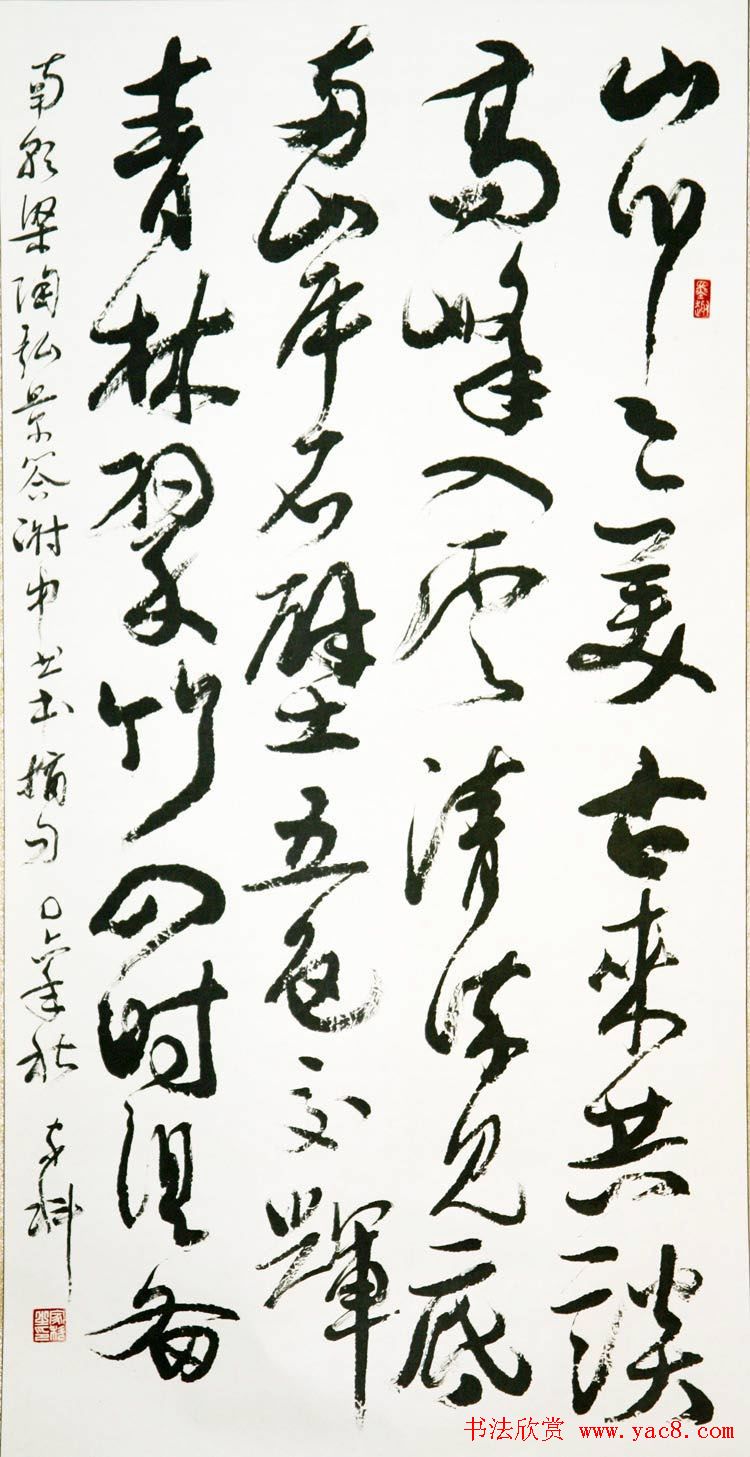 山川之美古來共談
高峰入雲清流見底
兩岸石壁五色交輝
青林翠竹四时俱备
南朝梁陶弘景答謝中书书摘句 年秋 家科
书法欣赏 www.yac8.com